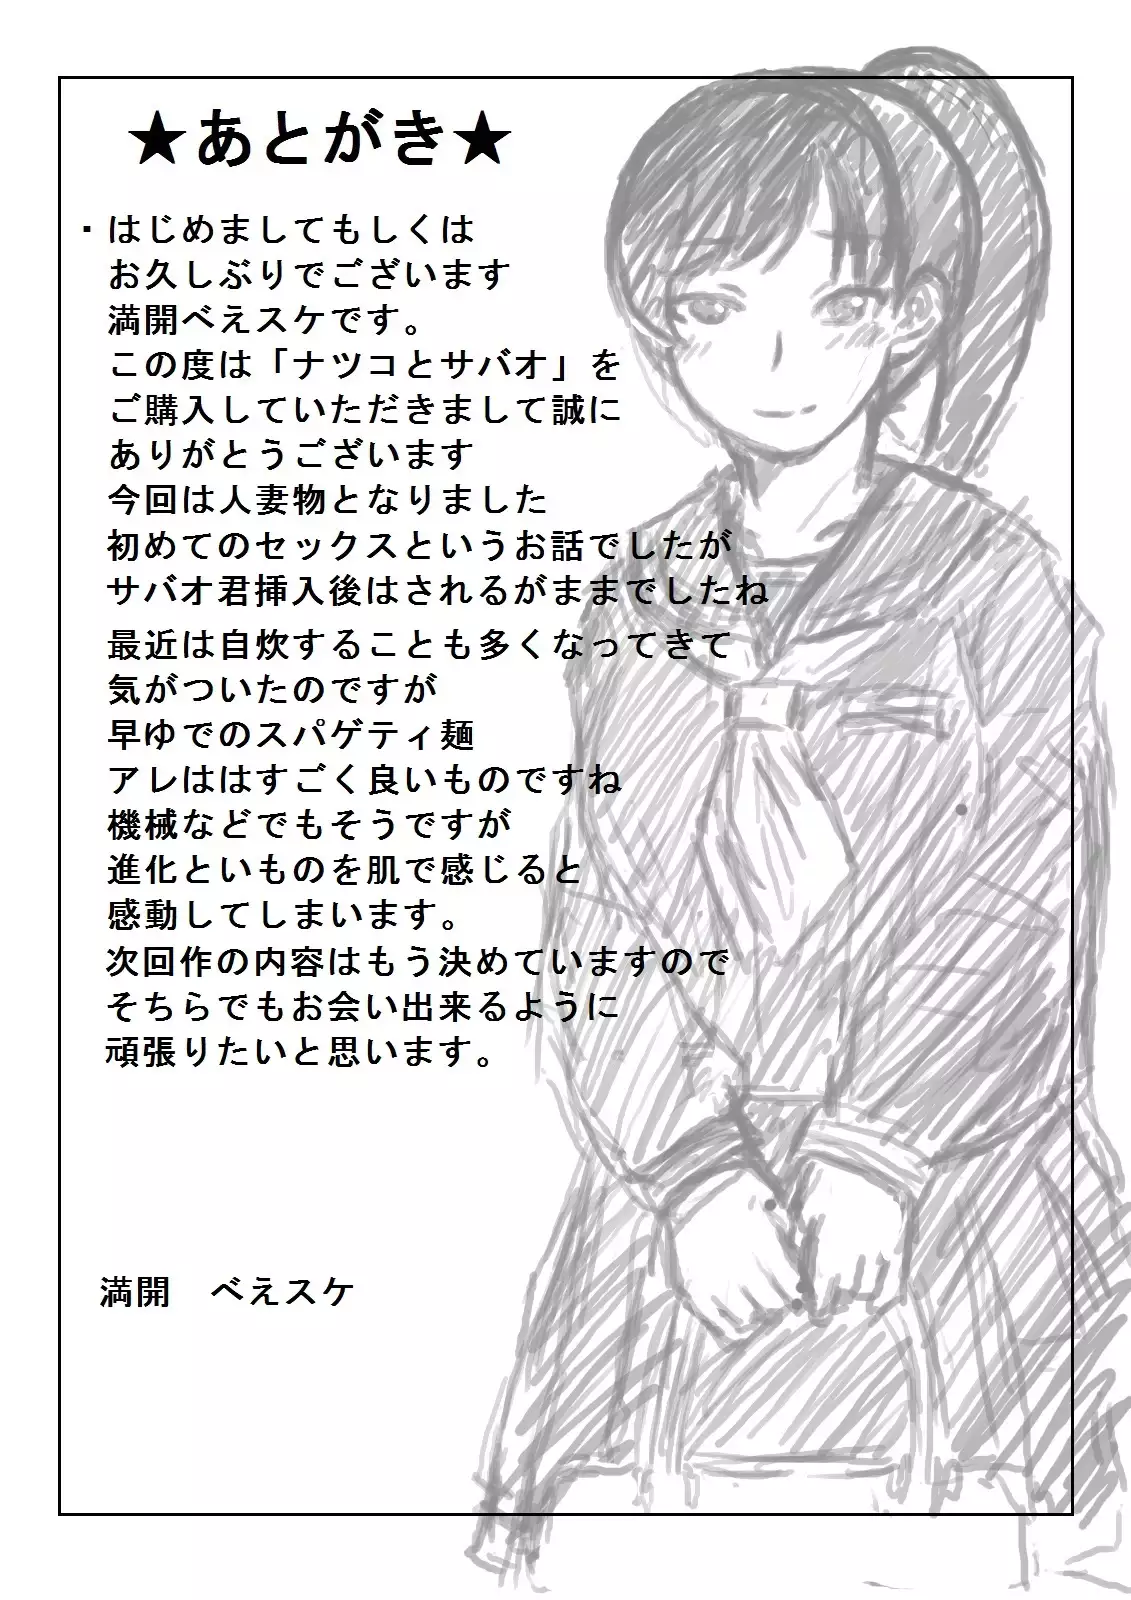 ★あとがき★
・はじめましてもしくは
お久しぶりでございます
満開べえスケです。
この度は「ナツコとサバオ」を
ご購入していただきまして誠に
ありがとうございます
今回は人妻物となりました
初めてのセックスというお話でしたが
サバオ君挿入後はされるがままでしたね
最近は自炊することも多くなってきて
気がついたのですが
早ゆでのスパゲティ麺
アレははすごく良いものですね
機械などでもそうですが
進化といものを肌で感じると
感動してしまいます。
次回作の内容はもう決めていますので
そちらでもお会い出来るように
頑張りたいと思います。
満開　べえスケ